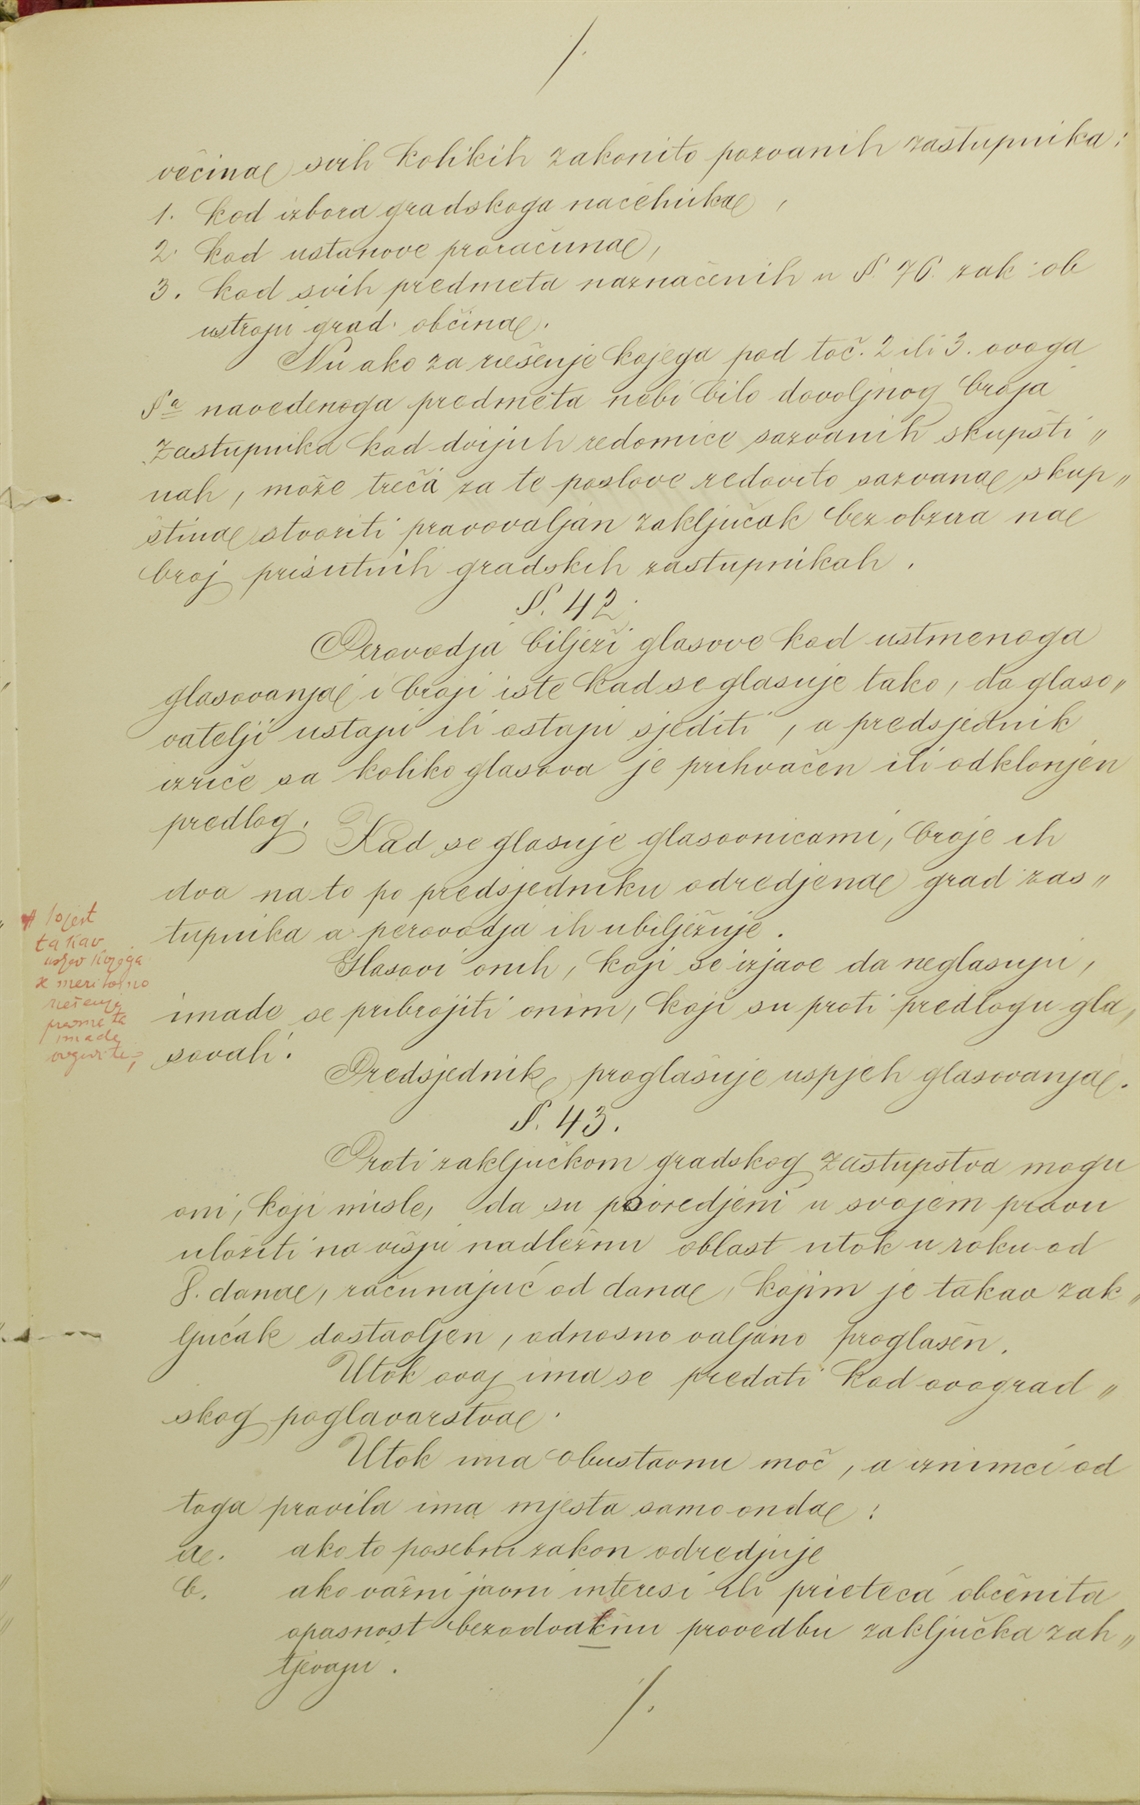 /.
većina svih kolikih zakonito pozvanih zastupnika:
1. kod izbora gradskoga načelnika,
2. kod ustanove proračuna,
3. kod svih predmeta naznačenih u §. 76. zak. ob
ustroju grad. občina.
Nu ako za rješenje kojega pod toč. 2 ili 3. ovoga
§a navedenoga predmeta nebi bilo dovoljnog broja
zastupnika kod dvijuh redomice sazvanih skupšti„
nah, može treća za te poslove redovito sazvana skup„
ština stvoriti pravovaljan zaključak bez obzira na
broj prisutnih gradskih zastupnikah.
§. 42.
Perovodja bilježi glasove kod ustmenoga
glasovanja i broji iste kad se glasuje tako, da glaso„
vatelji ustaju ili ostaju sjediti, a predsjednik
izriče sa koliko glasova je prihvaćen ili odklonjen
predlog.
Kad se glasuje glasovnicami, broje ih
dva na to po predsjedniku odredjena grad zas„
tupnika a perovodja ih ubilježuje.
Glasovi onih, koji se izjave da neglasuju,
imade se pribrojiti onim, koji su proti predlogu gla„
sovali.
Predsjednik proglašuje uspjeh glasovanja.
§. 43.
Proti zaključkom gradskog zastupstva mogu
oni, koji misle, da su povredjeni u svojem pravu
uložiti na višju nadležnu oblast utok u roku od
8. dana, računajuć od dana, kojim je takav zak„
ljućak dostavljen, odnosno valjano proglašen.
Utok ovaj ima se predati kod ovograd„
skog poglavarstva.
Utok ima obustavnu moč, a iznimci od
toga pravila ima mjesta samo onda:
a. ako to posebni zakon odredjuje
b. ako važni javni interesi ili prieteća obćenita
opasnost bezodvlačnu provedbu zaključka zah„
tjevaju.
/.
takav
kojega
rješenja
imade